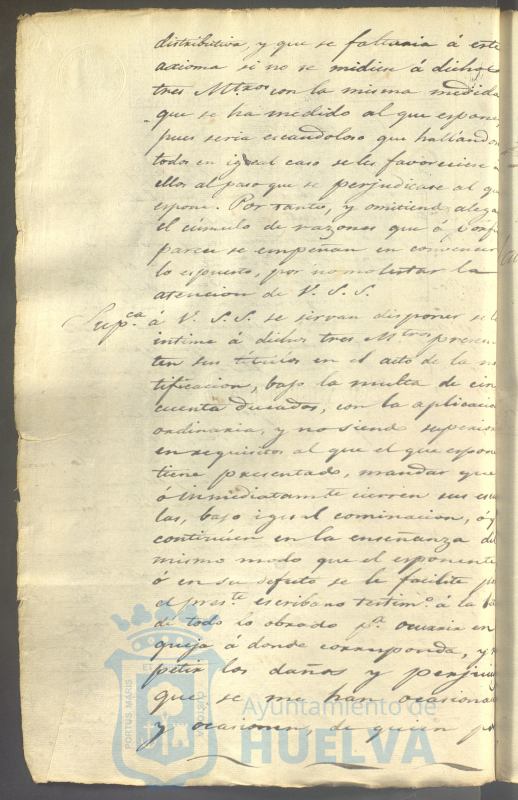 distributiva, y que se faltaria á este
axioma si no se midiese á dichos
tres Mtros con la misma medida
que se ha medido al que espone,
pues seria escandaloso que hallandose
todos en igual caso se les favoreciese a
ellos al paso que se perjudicase al que
espone. Por tanto, y omitiendo alegar
el cúmulo de razones que á
parecer se empeñan en convencer
lo espuesto, por no molestar la
atencion de V. S. S.
Supca á V. S. S. se sirvan disponer se les
intime á dichos tres Mtros presen
ten sus titulos en el acto de la no
tificacion, bajo la multa de cin
cuenta ducados, con la aplicacion
ordinaria, y no siendo superior
en requisitos al que el que espone
tiene presentado, mandar que
o inmediatamte cierren sus escue
las, bajo igual cominacion, ó q
continuen en la enseñanza del
mismo modo que el esponente
ó en su defecto se le facilite p
el preste escribano testimo á la
de todo lo obrado pa ocurrir en
queja á donde corresponda, y re
petir los daños y perjuicios
que se me han ocasionado
y ocasionen, de quien
PORTUS MARIS ET
Ayuntamiento de
HUELVA